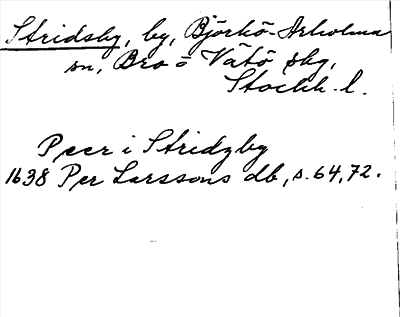 Stridsby, by, Björkö-Arholma
sn, Bro o Vätö skg,
Stockh. l.
Peer i Stridzby
1638 Per Larssons db, s. 64, 72.